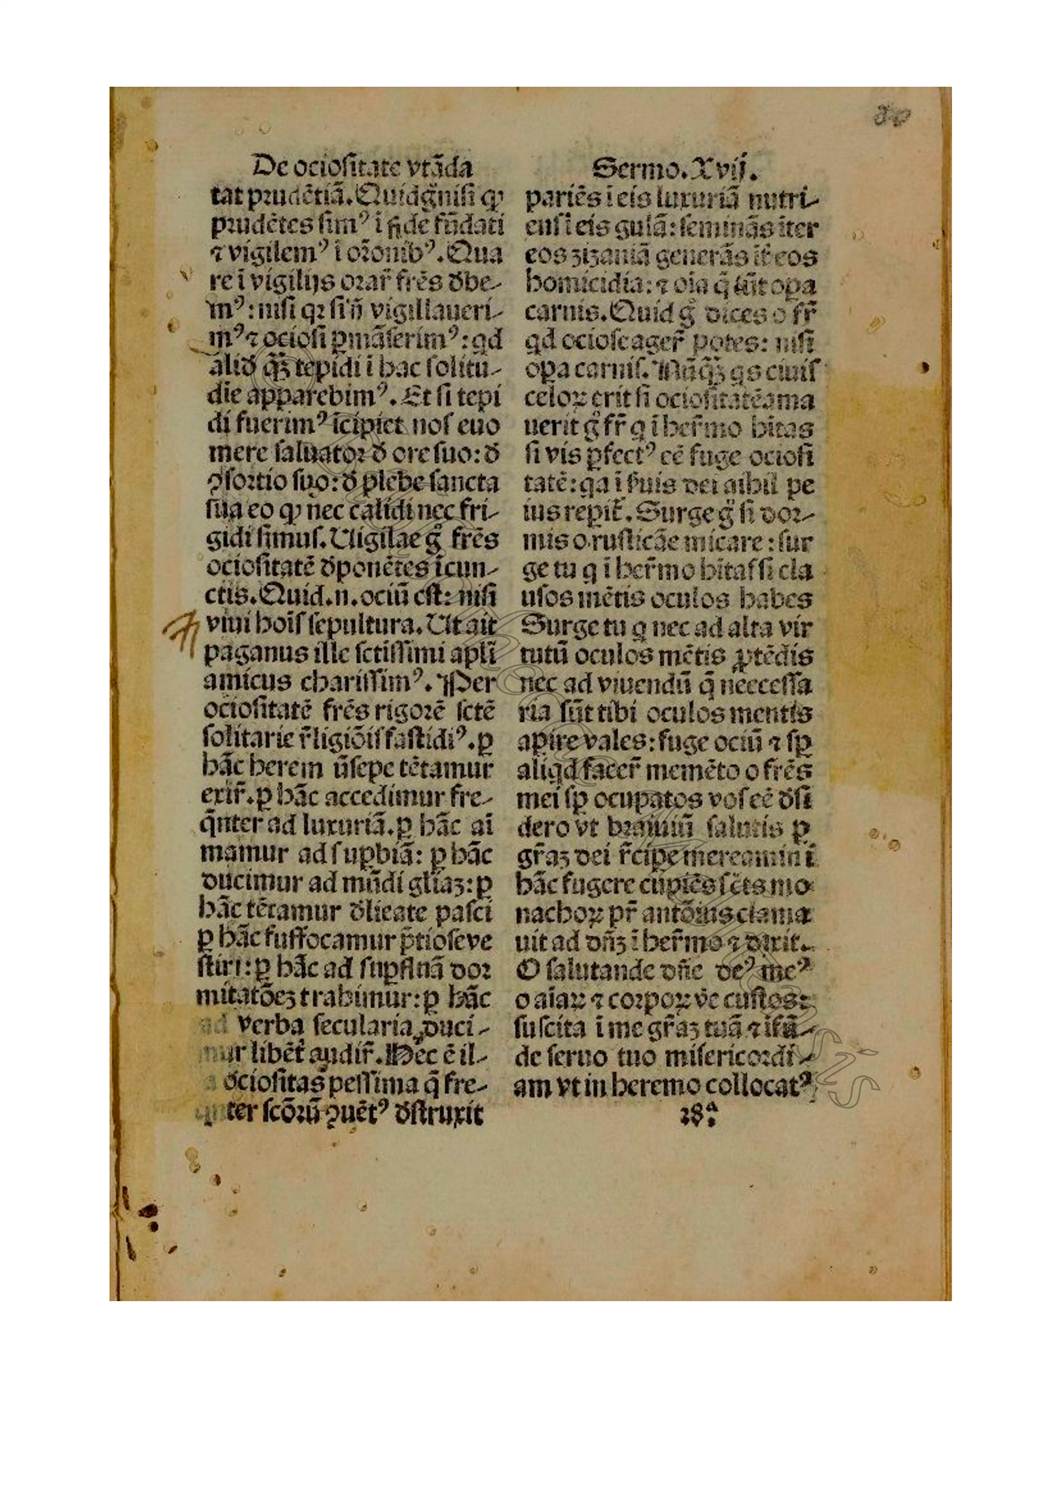 De ociositate vtãda
tat prudẽtiã. Quid g̃ nisi ꝙ
prudẽtes simꝰ ĩ fide fũdati
⁊ vigilemꝰ ĩ orõnibꝰ. Qua
re ĩ vigilijs orar̃ frẽs ðbe-
mꝰ: nisi qꝛ si ñ vigillaueri-
mꝰ ⁊ ociosi ꝑmãserimꝰ: qd
alið q̃ꝫ tepidi ĩ hac solitu-
die apparebimꝰ. Et si tepi
di fuerimꝰ ĩcipiet nos euo
mere saluator ð ore suo: ð
ꝯsortio suo: ð plebe sancta
sua eo ꝙ nec calidi nec fri-
gidi simus. Uigilae g̃ frẽs
ociositatẽ ðponẽtes ĩcun-
ctis. Quid .n. ociũ est: nisi
viui hoĩs sepultura. Ut ait
paganus ille sctissimi apłi
amicus charissimꝰ. Per
ociositatẽ frẽs rigorẽ sctẽ
solitarie r̃ligiõis fastidiꝰ. ꝑ
hãc herem ũ sepe tẽtamur
exir̃. ꝑ hãc accedimur fre-
q̃nter ad luxuriã. ꝑ hãc ai
mamur ad suꝑbiã: ꝑ hãc
ducimur ad mũdi gliaꝫ: ꝑ
hãc tẽtamur ðlicate pasci
ꝑ hãc suffocamur p̃tiose ve
stiri: ꝑ hãc ad suꝑfluã dor
mitatõeꝫ trahimur: ꝑ hãc
ad verba secularia ꝓduci-
mur libẽt audir̃. Hec ẽ il-
a ociositas pessima q̃ fre-
q̃nter scõrũ ꝯuẽtꝰ ðstruxit
Sermo. Xvij.
pariẽs ĩ eis luxuriã nutri-
ens ĩ eis gulã: seminãs iter
eos zizaniã generãs it̃ eos
homicidia: ⁊ oĩa q̃ sũt oꝑa
carnis. Quid g̃ dices o fr̃
qd ociose ager̃ potes: nisi
oꝑa carnis. Nũq̃ꝫ qs ciuis
celoꝝ erit si ociositatẽ ama
uerit g̃ fr̃ q ĩ her̃mo hitas
si vis ꝑfectꝰ eẽ fuge ociosi
tatẽ: qa ĩ suis dei nihil pe
ius repit̃. Surge g̃ si dor-
mis o rusticãe micare: sur
ge tu q ĩ her̃mo hitas si cla
usos mẽtis oculos habes
Surge tu q nec ad alta vir
tutũ oculos mẽtis ꝓtẽdis
nec ad viuendũ q̃ neccessa
ria sũt tibi oculos mentis
apire vales: fuge ociũ ⁊ sꝑ
aliqd facer̃ memẽto o frẽs
mei sꝑ ocupatos vos eẽ ðsi
dero vt brauiũ salutis ꝑ
gr̃aꝫ dei r̃cipe mereamini ĩ
hãc fugere cupiẽs sctˢ mo
nachoꝝ pr̃ antõius clama
uit ad dñꝫ ĩ her̃mo ⁊ dixit.
O salutande dñe deꝰ meꝰ
o aĩaꝝ ⁊ corpoꝝ ve custos:
suscita ĩ me gr̃aꝫ tuã ⁊ ifũ-
de seruo tuo misericordi-
am vt in heremo collocatꝰ